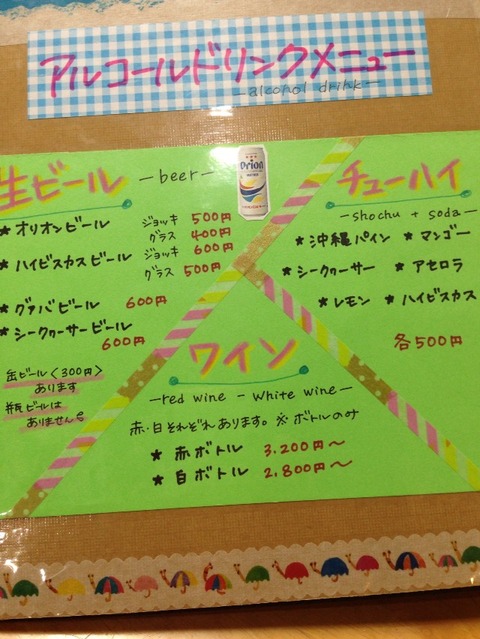 アルコールドリンクメニュー
—alcohol drink—
生ビール —beer—
Orion
★ オリオンビール ジョッキ 500円
グラス 400円
★ ハイビスカスビール ジョッキ 600円
グラス 500円
★ グァバビール 600円
★ シークヮーサービール
600円
缶ビール〈300円〉
あります
瓶ビールは
ありません
チューハイ
—shochu + soda—
★ 沖縄パイン ★ マンゴー
★ シークヮーサー ★ アセロラ
★ レモン ★ ハイビスカス
各500円
ワイン
—red wine - white wine—
赤・白それぞれあります。※ボトルのみ
★ 赤ボトル 3.200円〜
★ 白ボトル 2.800円〜